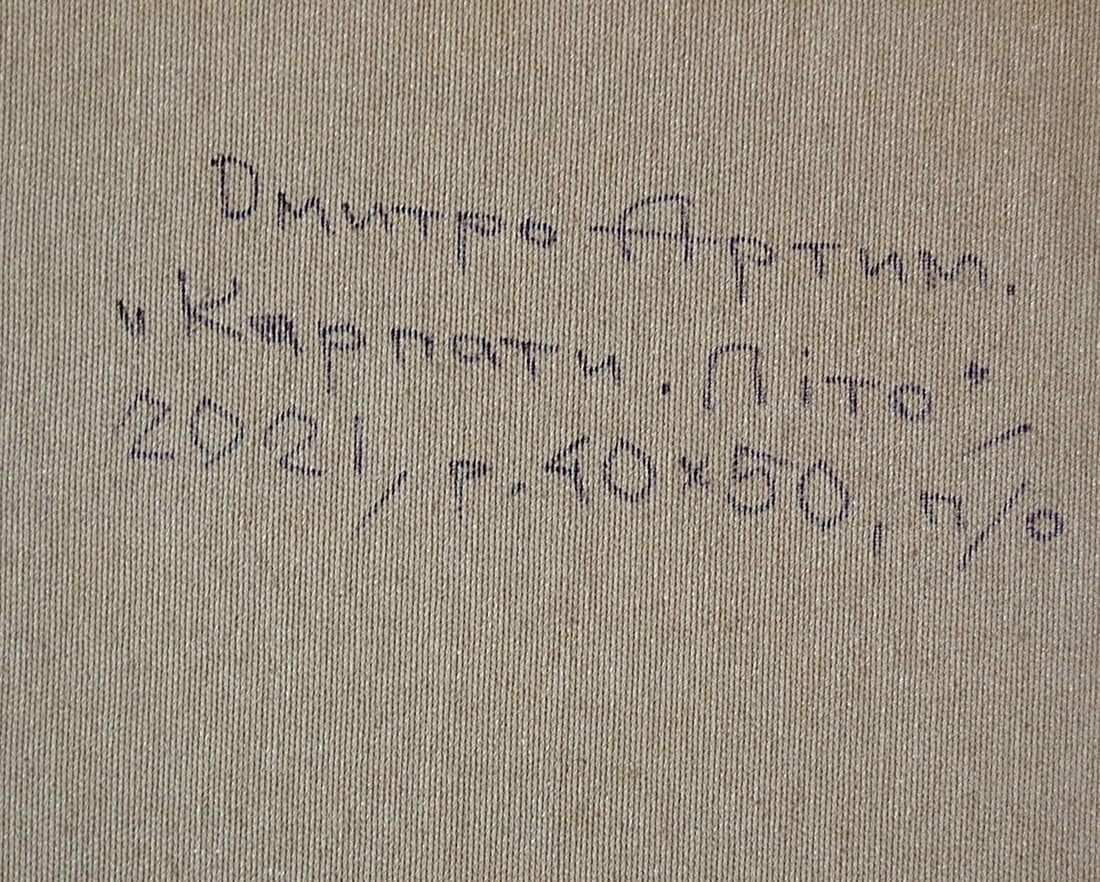 Дмитро Артим.
"Карпати. Літо",
2021, р. 40х50, п/о